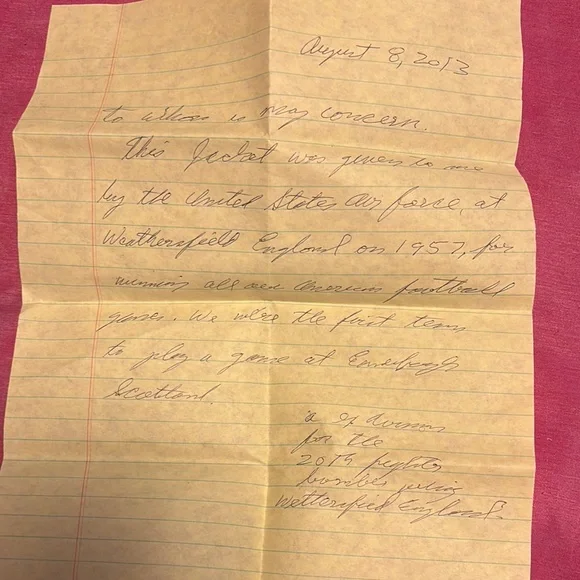 August 8, 2013
to whom is may concern.
This Jacket was given to me
by the United States Air force, at
Weathersfield England on 1957, for
winning all our American football
games. We were the first team
to play a game at
Scotland.
a ex
for the
20th fighter
bomber
England